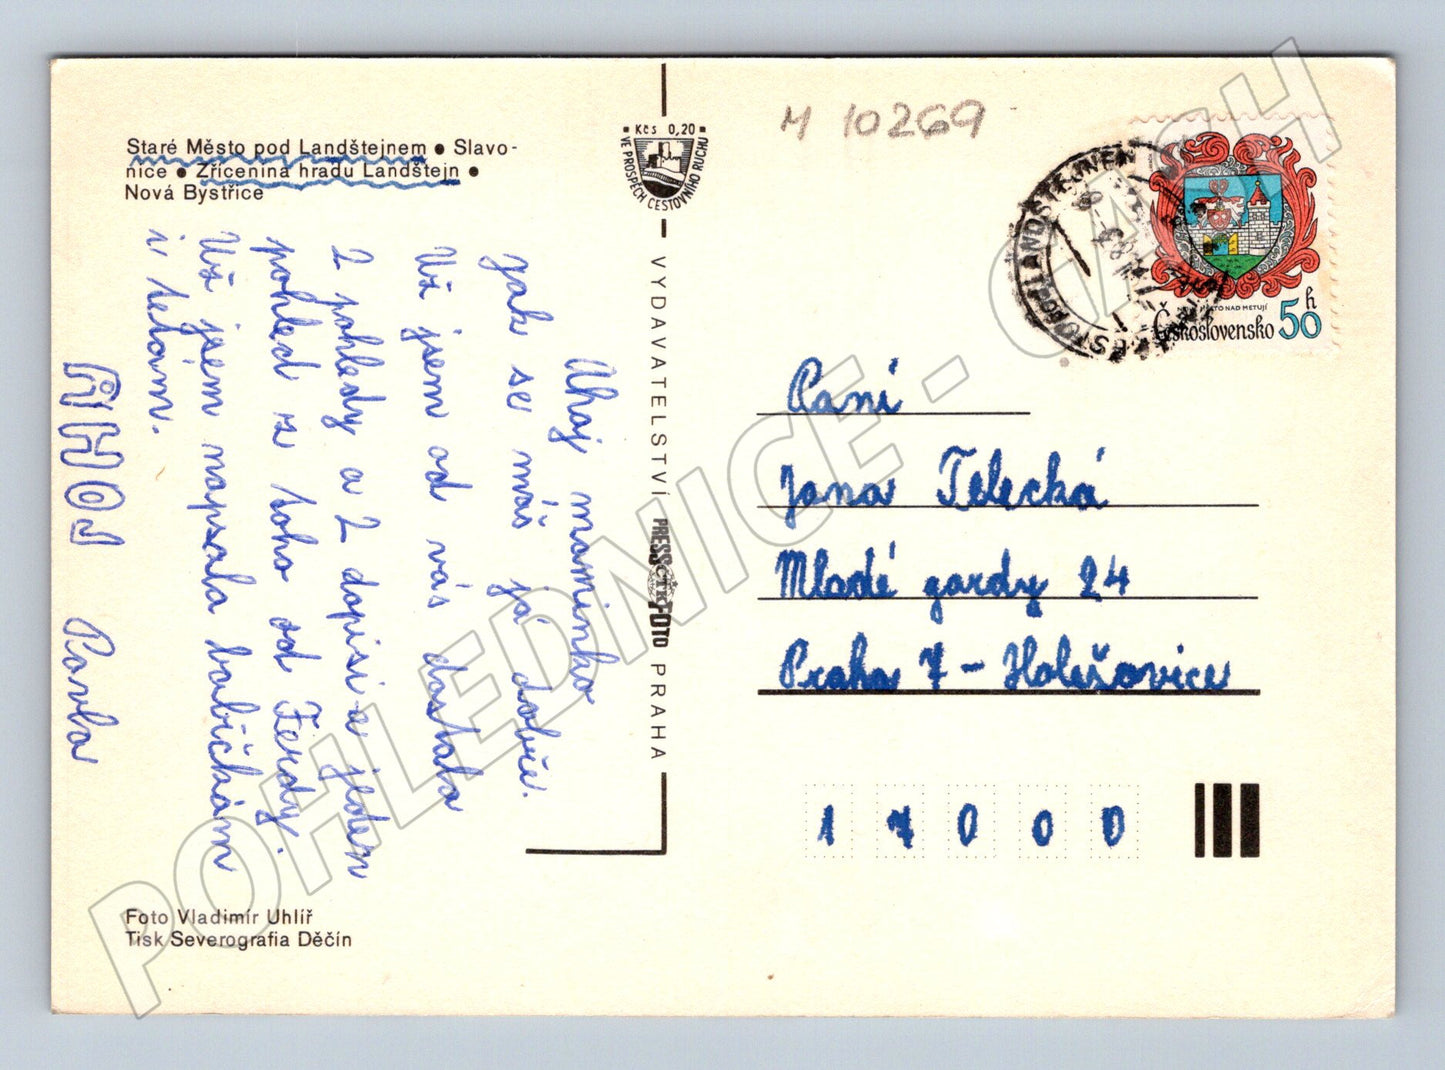 Staré Město pod Landštejnem ● Slavo-
nice ● Zřícenina hradu Landštejn ●
Nová Bystřice
Ahoj maminko
jak se máš já dobře.
Už jsem od vás dostala
2 pohledy a 2 dopisi a jeden
pohled z toho od Ferdy.
Už jsem napsala babičkám
i tetom.
AHOJ Pavla
Foto Vladimír Uhlíř
Tisk Severografia Děčín
Kčs 0,20
VE PROSPĚCH CESTOVNÍHO RUCHU
VYDAVATELSTVÍ PRESSFOTO PRAHA
ČTK
M 10269
LANDŠTEJNEM
MĚSTO NAD METUJÍ
Československo 50 h
Paní
Jana Telecká
Mladé gardy 24
Praha 7 - Holešovice
17000
POHLEDNICE - CASH